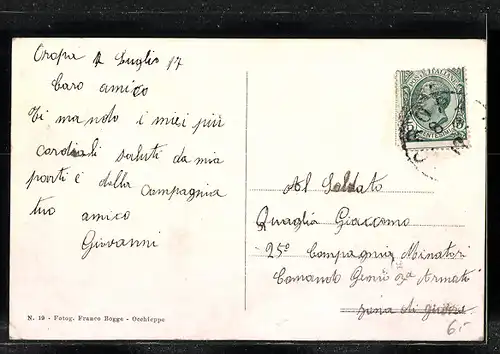 Oropa 2 Luglio 17
Caro amico
Ti mando i miei più
cordiali saluti da mia
parte e dalla Compagnia
tuo amico
Giovanni
N. 19 - Fotog. Franco Bogge - Occhieppo
POSTE ITALIANE
Al Soldato
Quaglia Giacomo
25º Compagnia Minatori
Comando Genio 2ª Armata
zona di guerra
6.-